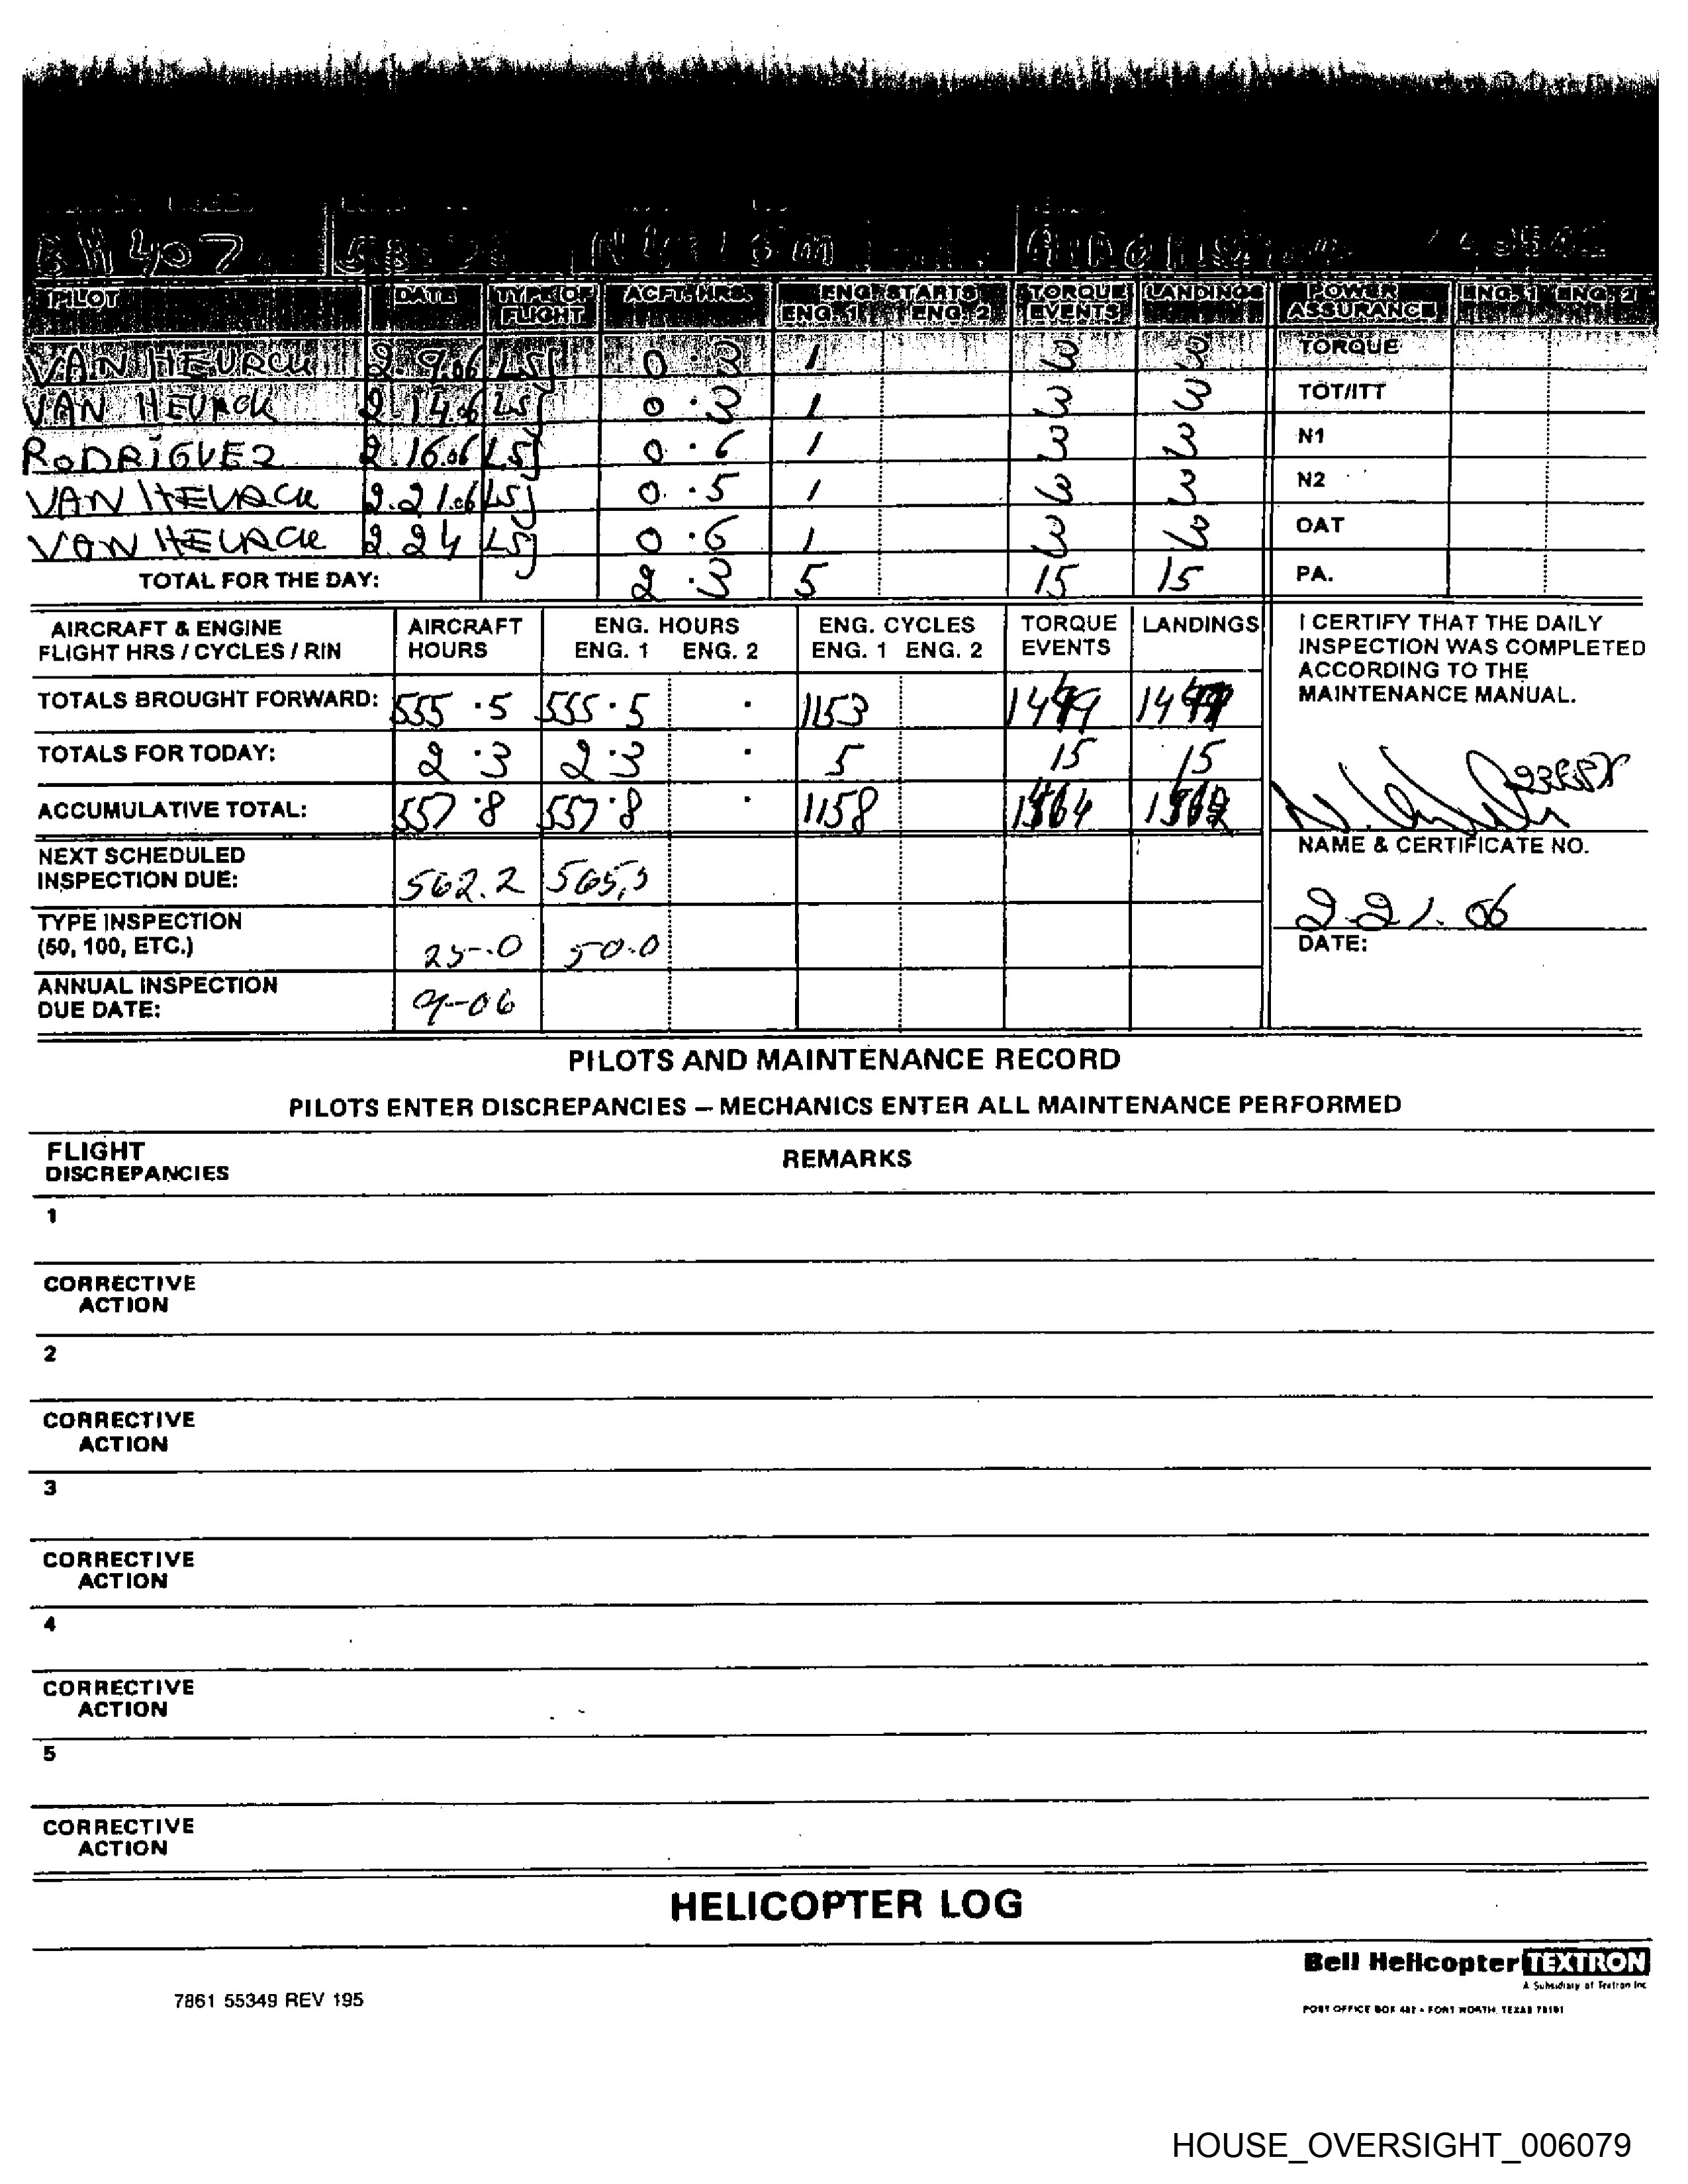 BH 407
PILOT DATE TYPE OF FLIGHT ACFT. HRS. ENG STARTS ENG. 1 ENG. 2 TORQUE EVENTS LANDINGS POWER ASSURANCE ENG. 1 ENG. 2
VAN HEURCK 2.9.06 LSJ 0.3 1 3 3 TORQUE
VAN HEURCK 2.14.06 LSJ 0.3 1 3 3 TOT/ITT
RODRIGUEZ 2.16.06 LSJ 0.6 1 3 3 N1
VAN HEURCK 2.21.06 LSJ 0.5 1 3 3 N2
VAN HEURCK 2.24 LSJ 0.6 1 3 3 OAT
TOTAL FOR THE DAY: 2.3 5 15 15 PA.
AIRCRAFT & ENGINE FLIGHT HRS / CYCLES / RIN AIRCRAFT HOURS ENG. HOURS ENG. 1 ENG. 2 ENG. CYCLES ENG. 1 ENG. 2 TORQUE EVENTS LANDINGS
I CERTIFY THAT THE DAILY
INSPECTION WAS COMPLETED
ACCORDING TO THE
MAINTENANCE MANUAL.
TOTALS BROUGHT FORWARD: 555.5 555.5 . 1153
TOTALS FOR TODAY: 2.3 2.3 . 5 15 15
ACCUMULATIVE TOTAL: 557.8 557.8 . 1158
NAME & CERTIFICATE NO.
NEXT SCHEDULED
INSPECTION DUE: 562.2 565.5
2.21.06
DATE:
TYPE INSPECTION
(50, 100, ETC.) 25.0 50.0
ANNUAL INSPECTION
DUE DATE: 9-06
PILOTS AND MAINTENANCE RECORD
PILOTS ENTER DISCREPANCIES – MECHANICS ENTER ALL MAINTENANCE PERFORMED
FLIGHT
DISCREPANCIES REMARKS
1
CORRECTIVE
ACTION
2
CORRECTIVE
ACTION
3
CORRECTIVE
ACTION
4
CORRECTIVE
ACTION
5
CORRECTIVE
ACTION
HELICOPTER LOG
Bell Helicopter TEXTRON
A Subsidiary of Textron Inc
7861 55349 REV 195
POST OFFICE BOX 482 • FORT WORTH, TEXAS 76101
HOUSE_OVERSIGHT_006079